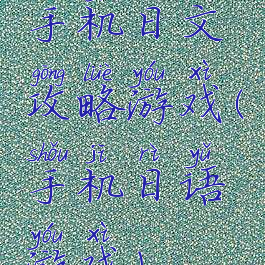 手机日文
gōng lüè yóu xì
攻略游戏(
shǒu jī rì yǔ
手机日语
yóu xì
游戏)